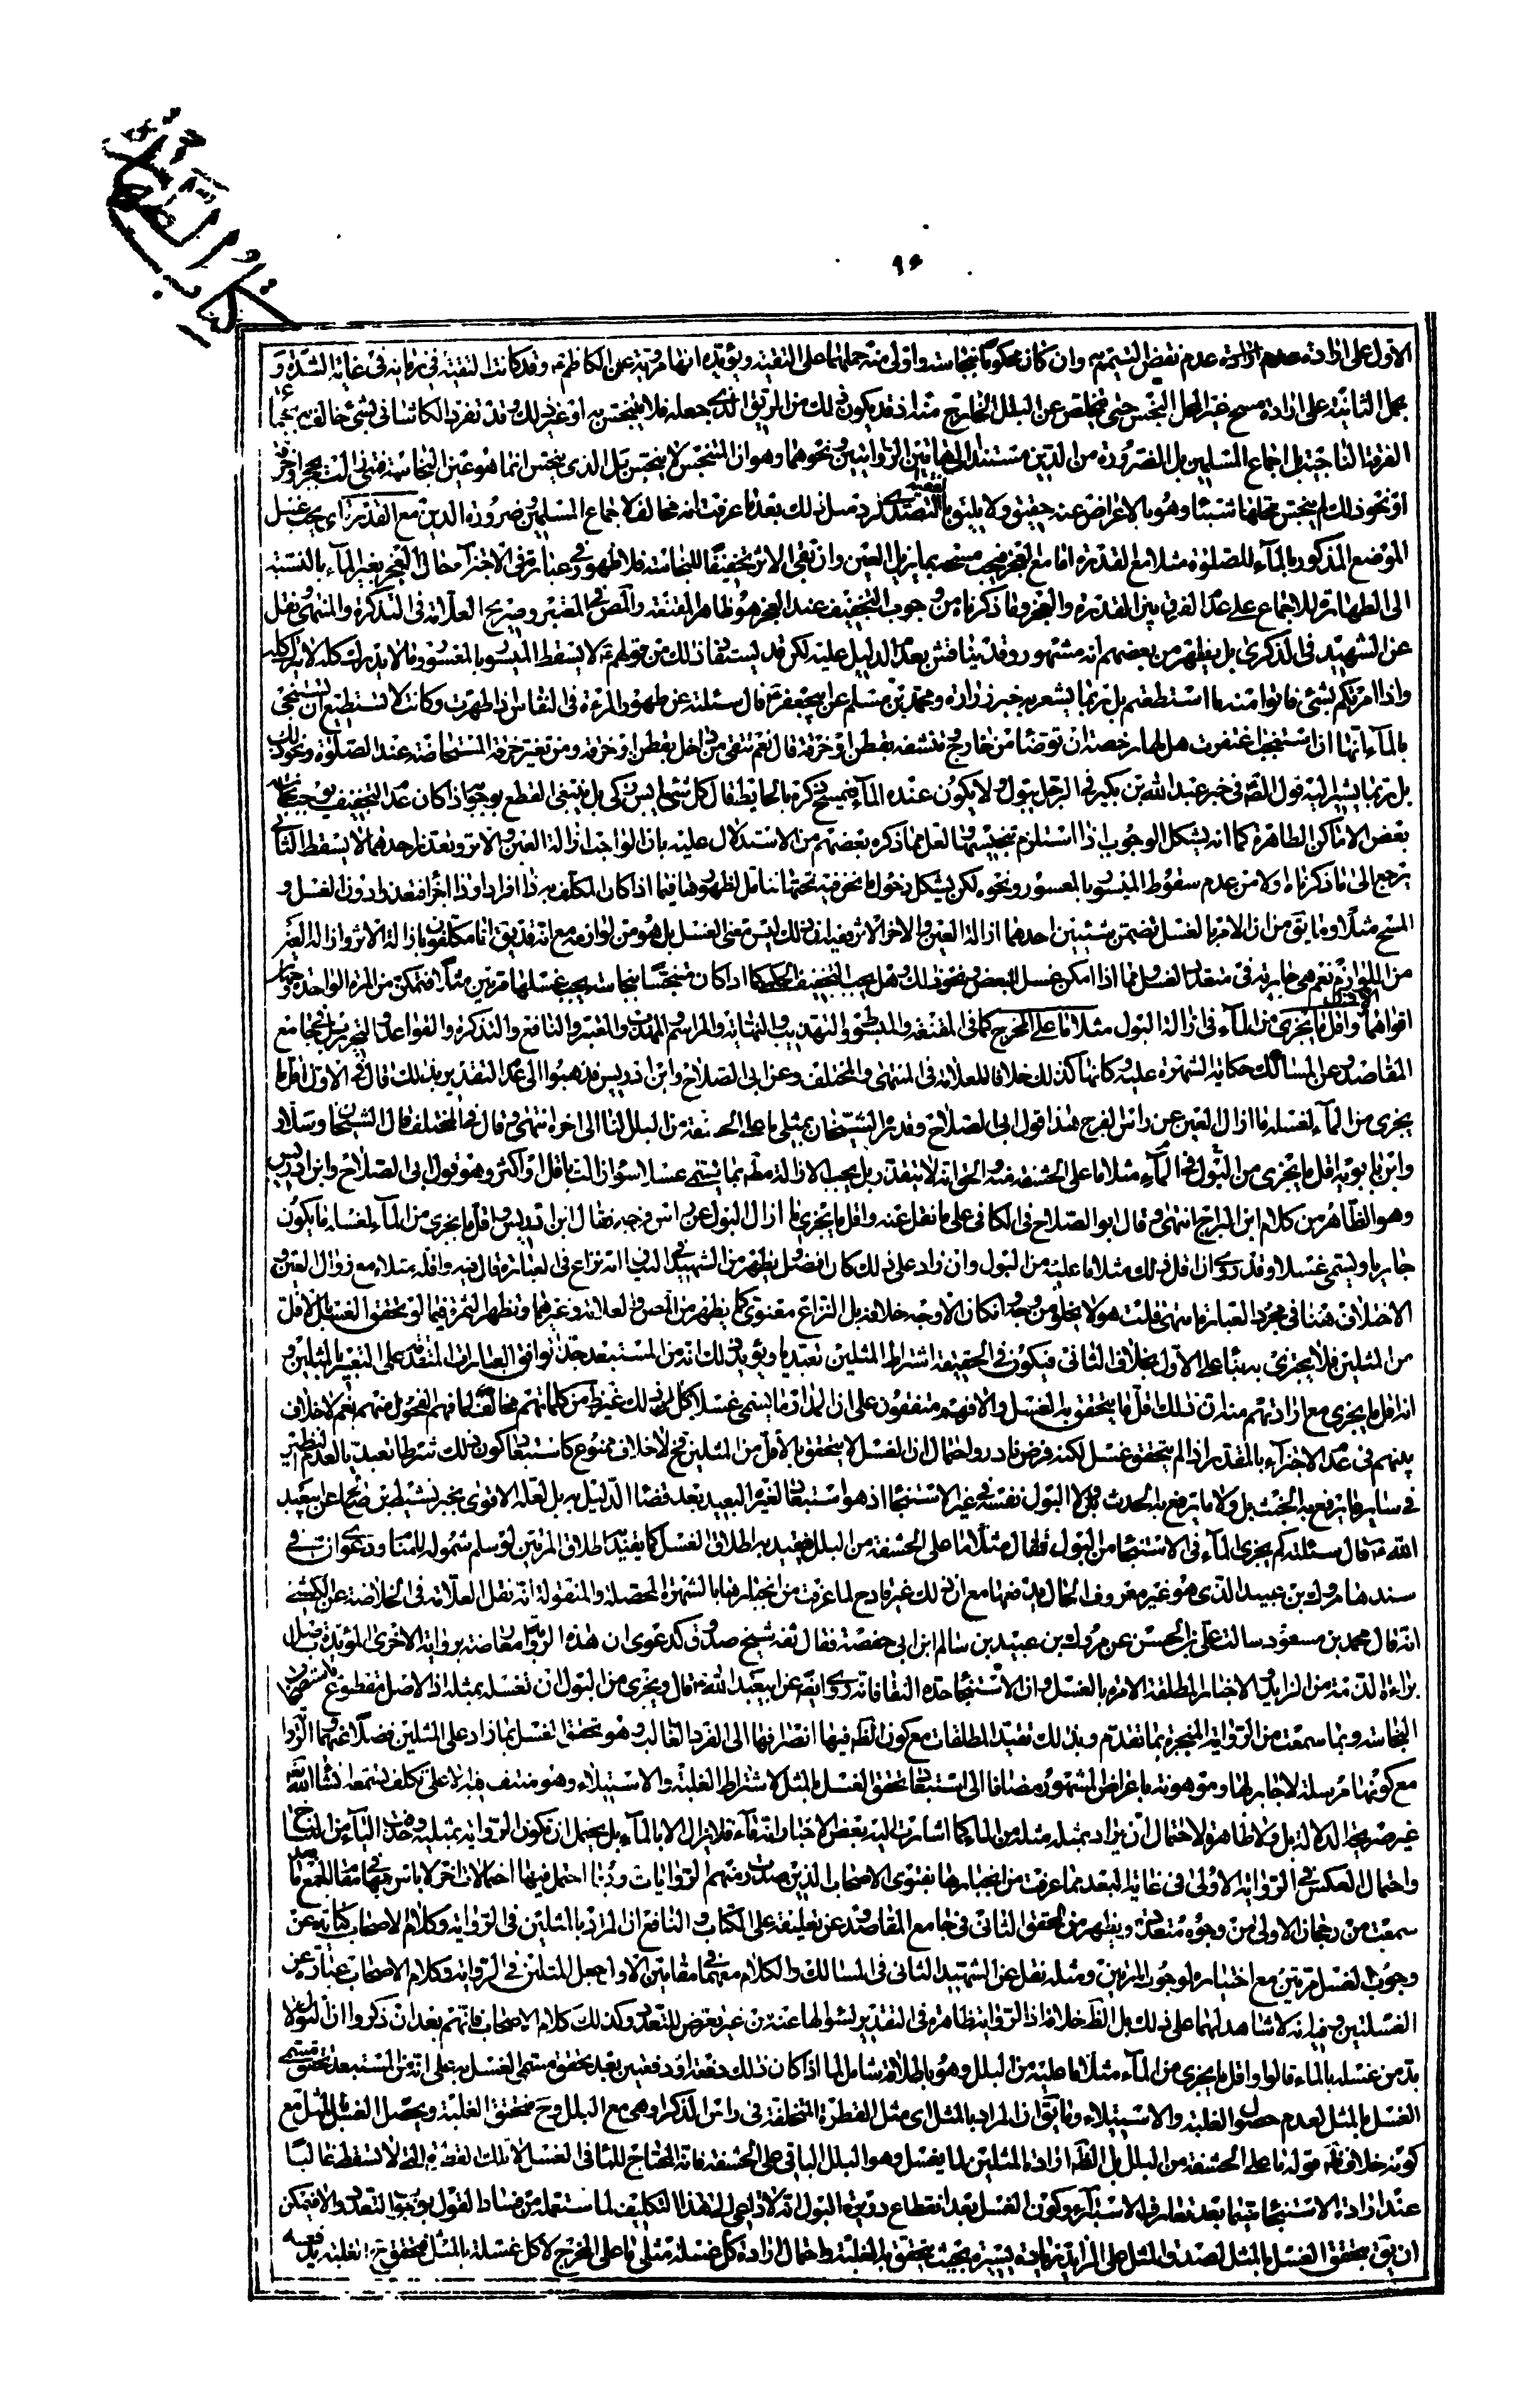 كتاب الطهارة
٩۶
الاول على ارادة عدم نقض التيمم وان كان محكوما بنجاسته واولى منه حملهما على التقية ويؤيده انها مروية عن الكاظم ع وقد كانت التقية في زمانه في غاية الشدة و
بحمل الثانية على ارادة مسح غير المحل النجس حتى يتخلص عن البلل الخارج منه اذ قد يكون ذلك من الريق الذي جعله فلا يتنجس به او غير ذلك وقد تفرد الكاشاني بشئ خالف به
الفرقة الناجية بل اجماع المسلمين بل الضرورة من الدين مستندا الى هاتين الروايتين ونحوهما وهو ان المتنجس لا ينجس بل الذي ينجس انما هو عين النجاسة فمتى زالت بحجر او خرقة
او نحو ذلك لم ينجس محلها شيئا وهو بالاعراض عنه حقيق ولا يليق بالفقيه التصدي لرد مثل ذلك بعد ما عرفت انه مخالف لاجماع المسلمين وضرورة الدين مع القدرة اي يجب غسل
الموضع المذكور بالماء للصلوة مثلا مع القدرة اما مع العجز فيجب مسحه بما يزيل العين وان بقي الاثر تخفيفا للنجاسة فلا ظهور في عبارته في الاجتزاء حال العجز بغير الماء بالنسبة
الى الطهارة وللاجماع على عدم الفرق بين القدرة والعجز وما ذكرناه من وجوب التخفيف عند العجز هو ظاهر المقنعة والمص في المعتبر وصريح العلامة في التذكرة والمنتهى ونقل
عن الشهيد في الذكرى بل يظهر من بعضهم انه مشهور وقد يناقش بعدم الدليل عليه لكن قد يستفاد ذلك من قولهم ع لا يسقط الميسور بالمعسور وما لا يدرك كله لا يترك كله
واذا امرتكم بشئ فاتوا منه ما استطعتم بل ربما يشعر به خبر زرارة ومحمد بن مسلم عن ابيجعفر ع قال سئلته عن طهور المرءة في النفاس اذا طهرت وكانت لا تستطيع ان تستنجي
بالماء انها ان استنجت اعتقرت هل لها رخصة ان توضأ من خارج وتنشفه بقطن او خرقة قال نعم تنقي من داخل بقطن او خرقة ومن تغير خرقة المستحاضة عند الصلوة ونحو ذلك
بل ربما يشير اليه قول الصادق في خبر عبد الله بن بكير في الرجل يبول ولا يكون عنده الماء فيمسح ذكره بالحائط قال كل شئ يابس زكي بل ينبغي القطع بوجوبه اذا كان عدم التخفيف يوجب نجاسة
بعض الاماكن الطاهرة كما انه يشكل الوجوب اذا استلزم تنجيسها ولعل ما ذكره بعضهم من الاستدلال عليه بان الواجب ازالة العين والاثر وبتعذر احدهما لا يسقط الثاني
يرجع الى ما ذكرناه ولا من عدم سقوط الميسور بالمعسور ونحوه لكن يشكل دخول ما نحن فيه تحتها تامل لظهورها فيما اذا كان المكلف به ذا افراد او ذا اجزاء فتعذر ادون الغسل و
المسح مثلا وما يق من ان الامر بالغسل تضمن شيئين احدهما ازالة العين والاخر الاثر فيه ان ذلك ليس معنى الغسل بل هو من لوازمه مع انه قد يق انا مكلفون بازالة الاثر وازالة العين
من اللوازم نعم هي جارية في متعدد الغسل وفيما اذا امكن غسل البعض ونحو ذلك وهل يجب التخفيف الحكمي كما اذا كان متنجسا بنجاسة يجب غسلها مرتين مثلا فتمكن من المرة الواحدة وجهان
اقواهما الاول واقل ما يجزي من الماء في ازالة البول مثلا ما على المخرج كما في المقنعة والمبسوط والتهذيب والنهاية والمراسم والمهذب والمعتبر والنافع والتذكرة والقواعد والتحرير وفي جامع
المقاصد وعن المسالك حكاية الشهرة عليه وكانها كذلك خلافا للعلامة في المنتهى والمختلف وعن ابي الصلاح وابن ادريس فذهبوا الى عدم التقدير بذلك قال في الاول اقل ما
يجزي من الماء لغسله ما ازال العين عن رأس الفرج هذا قول ابي الصلاح وقدره الشيخان بمثلي ما على الحشفة من البلل لنا الى اخره انتهى وقال في المختلف قال الشيخان وسلار
وابن بابويه اقل ما يجزي من البول في الماء مثلا ما على الحشفة منه والحق انه لا يتقدر بل يجب الازالة مطلقا بما يسمى غسلا سواء زالت باقل او اكثر وهو قول ابي الصلاح وابن ادريس
وهو الظاهر من كلام ابن البراج انتهى وقال ابو الصلاح في الكافي على ما نقل عنه واقل ما يجزي ما ازال البول عن رأس فرجه فقال ابن ادريس واقل ما يجزي من الماء لغسله ما يكون
جاريا ويسمى غسلا وقد روى ان اقل ذلك مثلا ما عليه من البول وان زاد على ذلك كان افضل ويظهر من الشهيد في البيان انه نزاع في العبارة قال فيه واقله مثلاه مع زوال العين و
الاختلاف هنا في مجرد العبارة انتهى قلت هو لا يخلو من وجه وان كان الاوجه خلافه بل النزاع معنوي كما يظهر من المص والعلامة وغيرهما وتظهر الثمرة فيما لو تحقق الغسل بالاقل
من المثلين فلا يجزي بهنا على الاول بخلاف الثاني فيكون في الحقيقة اشتراط المثلين تعبديا ويؤيد ذلك انه من المستبعد جدا توافق العبارات المتقدمة على التعبير بالمثلين و
انه اقل ما يجزي مع ارادتهم منه ان ذلك اقل ما يتحقق به الغسل والا فهم متفقون على ان المدار ما يسمى غسلا كل ذلك غير ظاهر من كلماتهم مخالف لما فهم الفحول منهم نعم لا خلاف
بينهم في عدم الاجتزاء بالمقدر اذا لم يتحقق غسل لكنه فرض نادر واحتمال ان الغسل لا يتحقق بالاقل من المثلين فح لا خلاف ممنوع كاستبعاد كون ذلك شرطا تعبديا لعدم النظير
في ساير ما يرفع به الخبث بل ولا ما يرفع به الحدث قيل ولا البول نفسه في غير الاستنجاء اذ هو استبعاد لغير البعيد بعد قضاء الدليل به بل لعله الاقوى بخبر نشيط بن صالح عن ابيعبد
الله ع قال سئلته كم يجزي الماء في الاستنجاء من البول فقال مثلا ما على الحشفة من البلل فيقيد به اطلاق الغسل كما يقيد اطلاق المرتين لو سلم شموله للمقام ودعوى ان في
سندها مروك بن عبيد الذي هو غير معروف الحال يدفعها مع ان ذلك غير قادح لما عرفت من انجبارها بالشهرة المحصلة والمنقولة انه نقل العلامة في الخلاصة عن الكشي
انه قال محمد بن مسعود سالت علي بن الحسن عن مروك بن عبيد بن سالم ابن ابي حفصة فقال ثقة شيخ صدوق كدعوى ان هذه الرواية معارضة بروايته الاخرى المؤيدة باصل
برائة الذمة من الزايد والاخبار المطلقة الامرة بالغسل وان الاستنجاء حده النقاء فانه روى ايضا عن ابيعبد الله ع قال ويجزي من البول ان تغسله بمثله اذ الاصل مقطوع باستصحاب
النجاسة وبما سمعت من الرواية المنجبرة بما تقدم وبذلك تقيد المطلقات مع كون الظاهر فيها انصرافها الى الفرد الغالب وهو تحقق الغسل بما زاد على المثلين فضلا عنهما والرواية
مع كونها مرسلة لا جابر لها وموهونة باعراض المشهور مضافا الى استبعاد تحقق الغسل بالمثل لاشتراط الغلبة والاستيلاء وهو منتف فيه الا على تكلف تسمعه انشاء الله تعالى
غير صريحة الدلالة بل ولا ظاهرة لاحتمال ان يراد بمثله مثله من الماء كما اشارت اليه بعض الاخبار انه ماء فلا يزال الا بالماء بل يحتمل ان تكون الرواية بمثليه وحذفت الياء من النساخ
واحتمال العكس في الرواية الاولى في غاية البعد بما عرفت من انجبارها بفتوى الاصحاب الذين صدرت منهم الروايات وربما احتمل فيها احتمالات اخر لا باس بها في مقام الجمع بعد ما
سمعت من رجحان الاولى من وجوه متعددة ويظهر من المحقق الثاني في جامع المقاصد وعن تعليقه على الكتاب والنافع ان المراد بالمثلين في الرواية وكلام الاصحاب كناية عن
وجوب الغسل مرتين مع اختياره لوجوب المرتين ومثله نقل عن الشهيد الثاني في المسالك والكلام معهما في مقامين الاول جعل المثلين في الرواية وكلام الاصحاب عبارة عن
الغسلتين وفيه انه لا شاهد لهما على ذلك بل الظاهر خلافه اذ الرواية ظاهرة في التقدير لسؤالها عنه من غير تعرض للتعدد وكذلك كلام الاصحاب فانهم بعد ان ذكروا ان البول لا
بد من غسله بالماء قالوا واقل ما يجزي من الماء مثلا ما عليه من البلل وهو باطلاقه شامل لما اذا كان ذلك دفعة او دفعتين بعد تحقق مسمى الغسل به على انه من المستبعد تحقق مسمى
الغسل بالمثل لعدم حصول الغلبة والاستيلاء وما يق ان المراد بالمثل اي مثل القطرة المتخلفة في رأس الذكر او هي مع البلل وح فتحقق الغلبة ويحصل الغسل بالمثل مع
كونه خلاف ظاهر قوله ما على الحشفة من البلل بل الظاهر ارادة المثلين لما يغسل وهو البلل الباقي على الحشفة فانه المحتاج للماء في الغسل لا تلك القطرة التي لا تسقط غالبا
عند ارادة الاستنجاء سيما بعد تعارف الاستبراء وكون الغسل بعد انقطاع دريرة البول انه لا داعي الى هذا التكليف لما ستعلمه من فساد القول بوجوب التعدد والا فيمكن
ان يق بتحقق الغسل بالمثل لصدق المثل على الزايد زيادة يسيرة بحيث يتحقق به الغلبة واحتمال ارادة كل غسلة مثلي ما على المخرج لا كل غسلة بالمثل فيتحقق ح الغلبة يدفعه